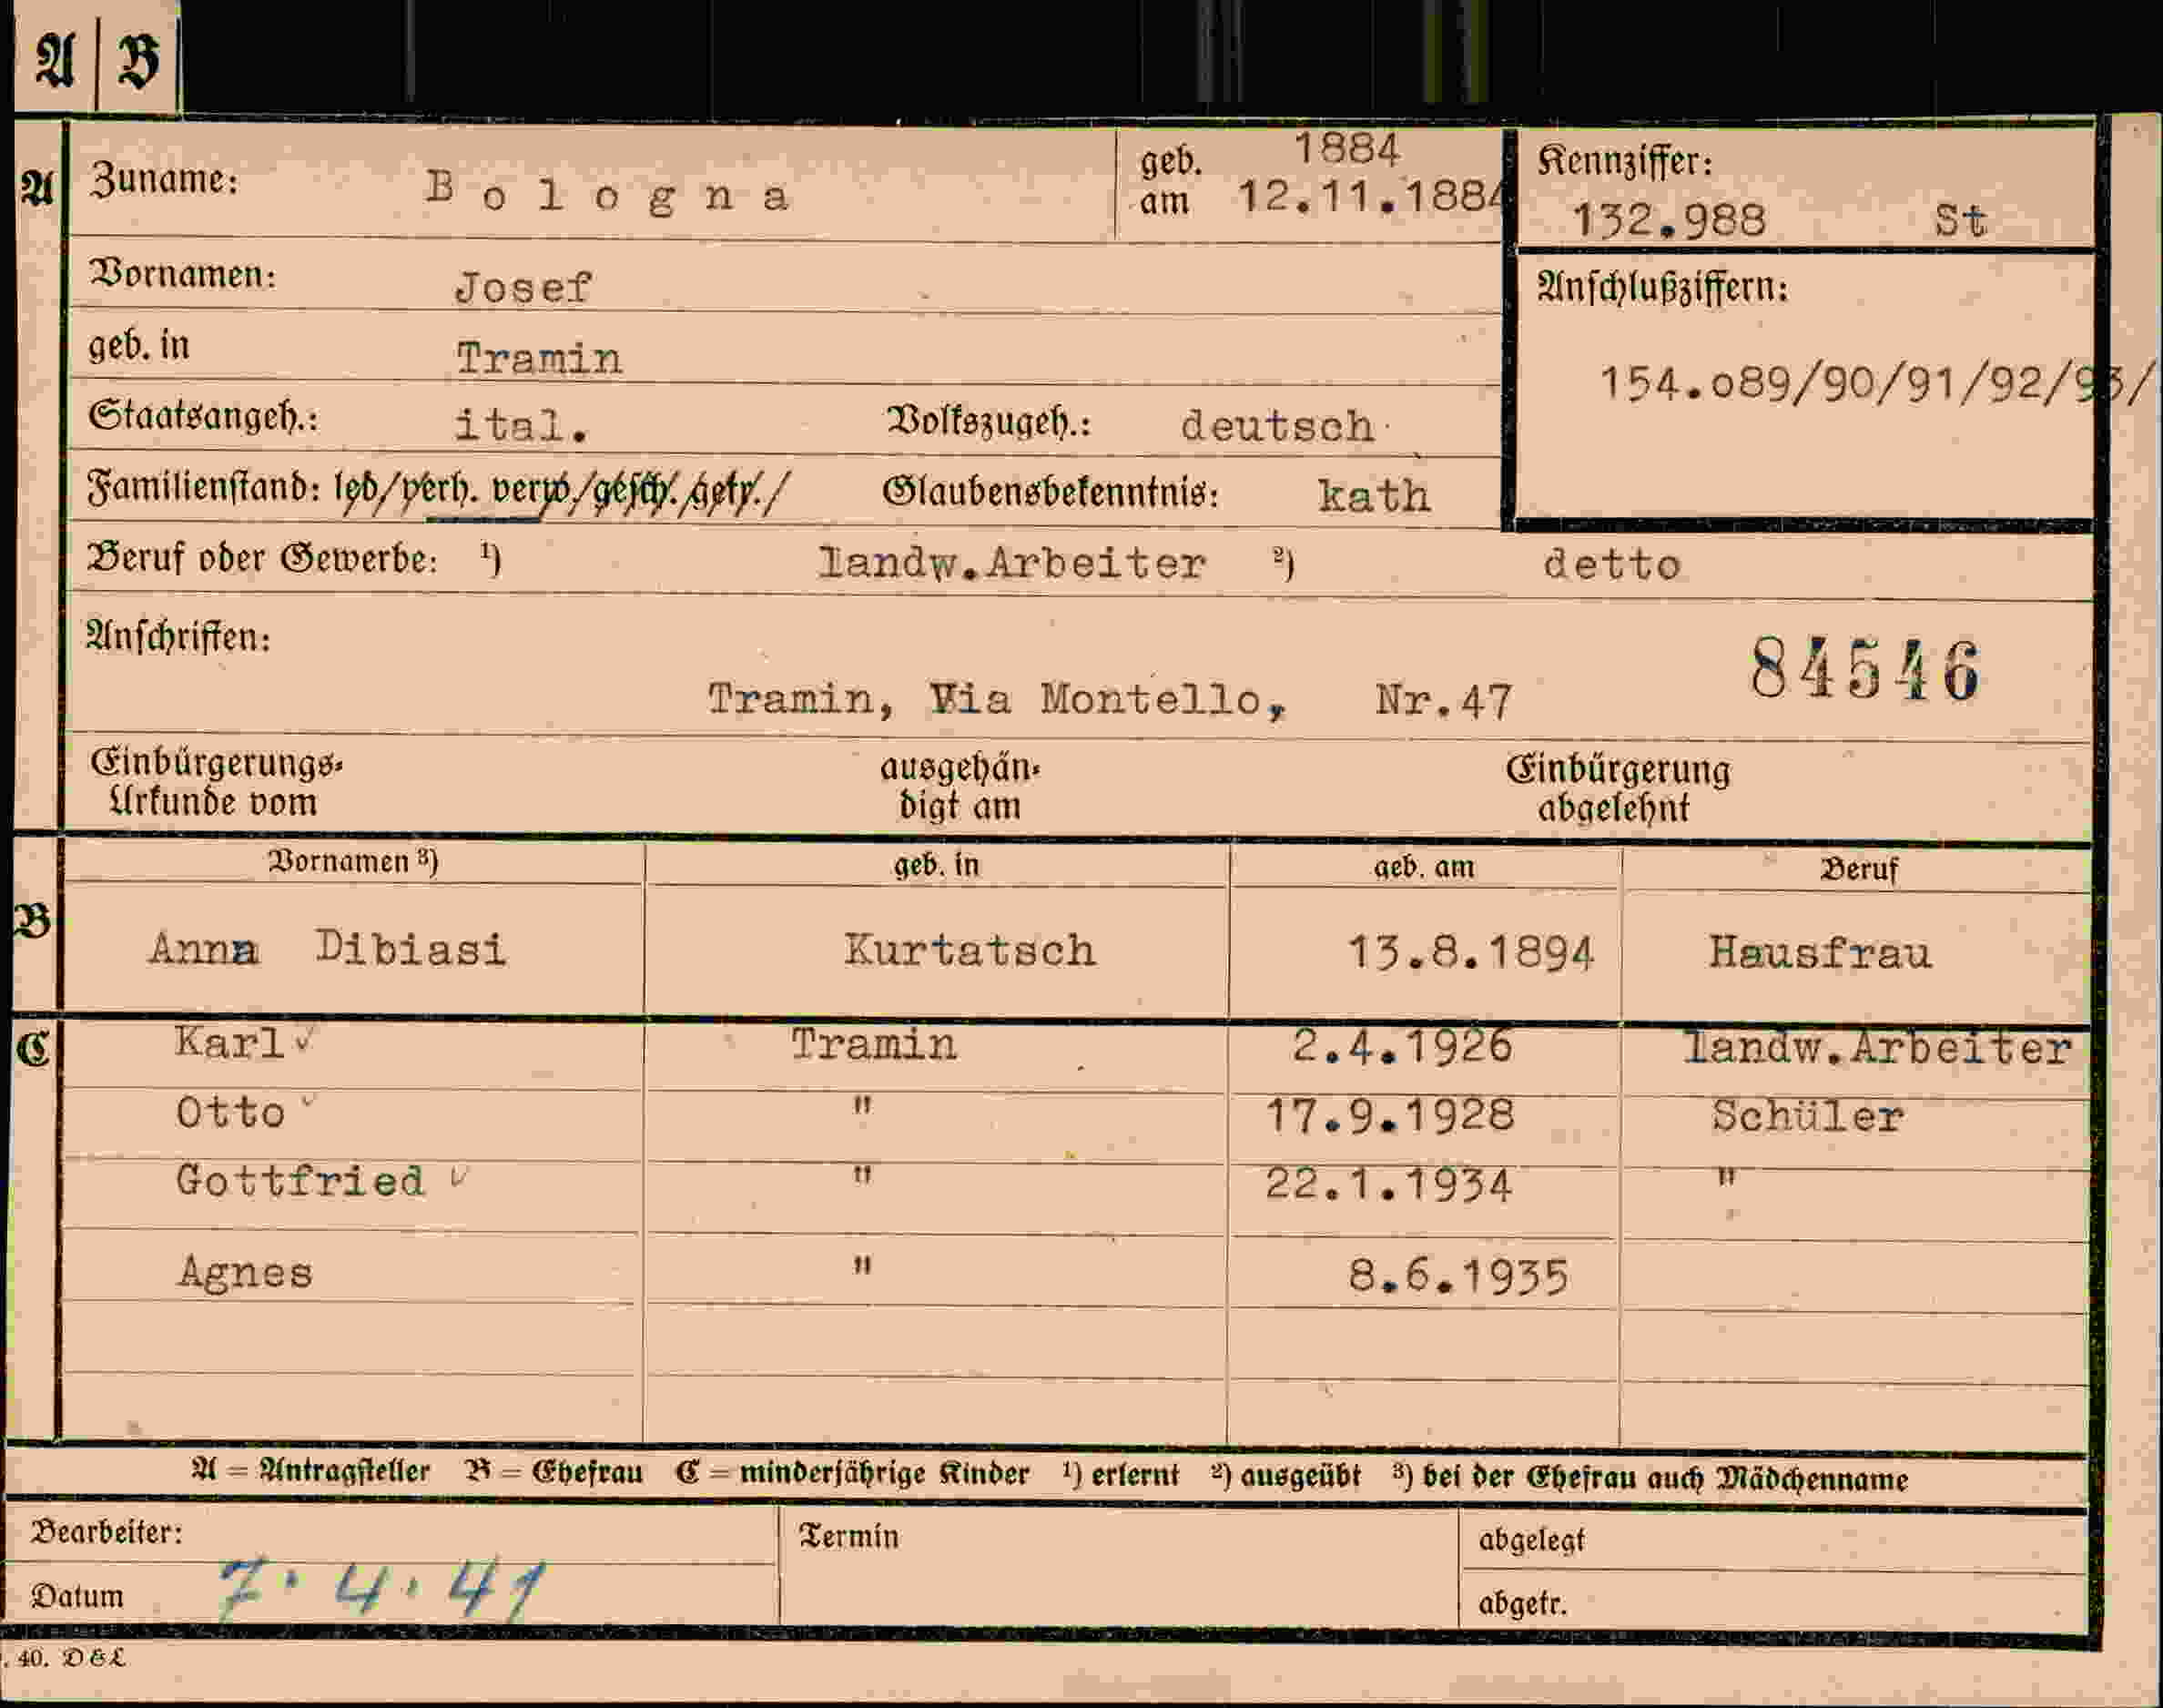 A | B
1884
A Zuname: Bologna geb. am 12.11.1884 Kennziffer: 132.988 St
Vornamen: Josef Anschlußziffern:
geb. in Tramin 154.o89/90/91/92/93/
Staatsangeh.: ital. Volkszugeh.: deutsch
Familienstand: led/verh. verw./gesch./getr./ Glaubensbekenntnis: kath
Beruf oder Gewerbe: 1) landw.Arbeiter 2) detto
Anschriften: 84546
Tramin, Via Montello, Nr.47
Einbürgerungs- ausgehän- Einbürgerung
Urkunde vom digt am abgelehnt
Vornamen 3) geb. in geb. am Beruf
B Anna Dibiasi Kurtatsch 13.8.1894 Hausfrau
C Karl Tramin 2.4.1926 landw.Arbeiter
Otto " 17.9.1928 Schüler
Gottfried " 22.1.1934 "
Agnes " 8.6.1935
A = Antragsteller B = Ehefrau C = minderjährige Kinder 1) erlernt 2) ausgeübt 3) bei der Ehefrau auch Mädchenname
Bearbeiter: Termin abgelegt
Datum 7.4.41 abgetr.
. 40. D & L